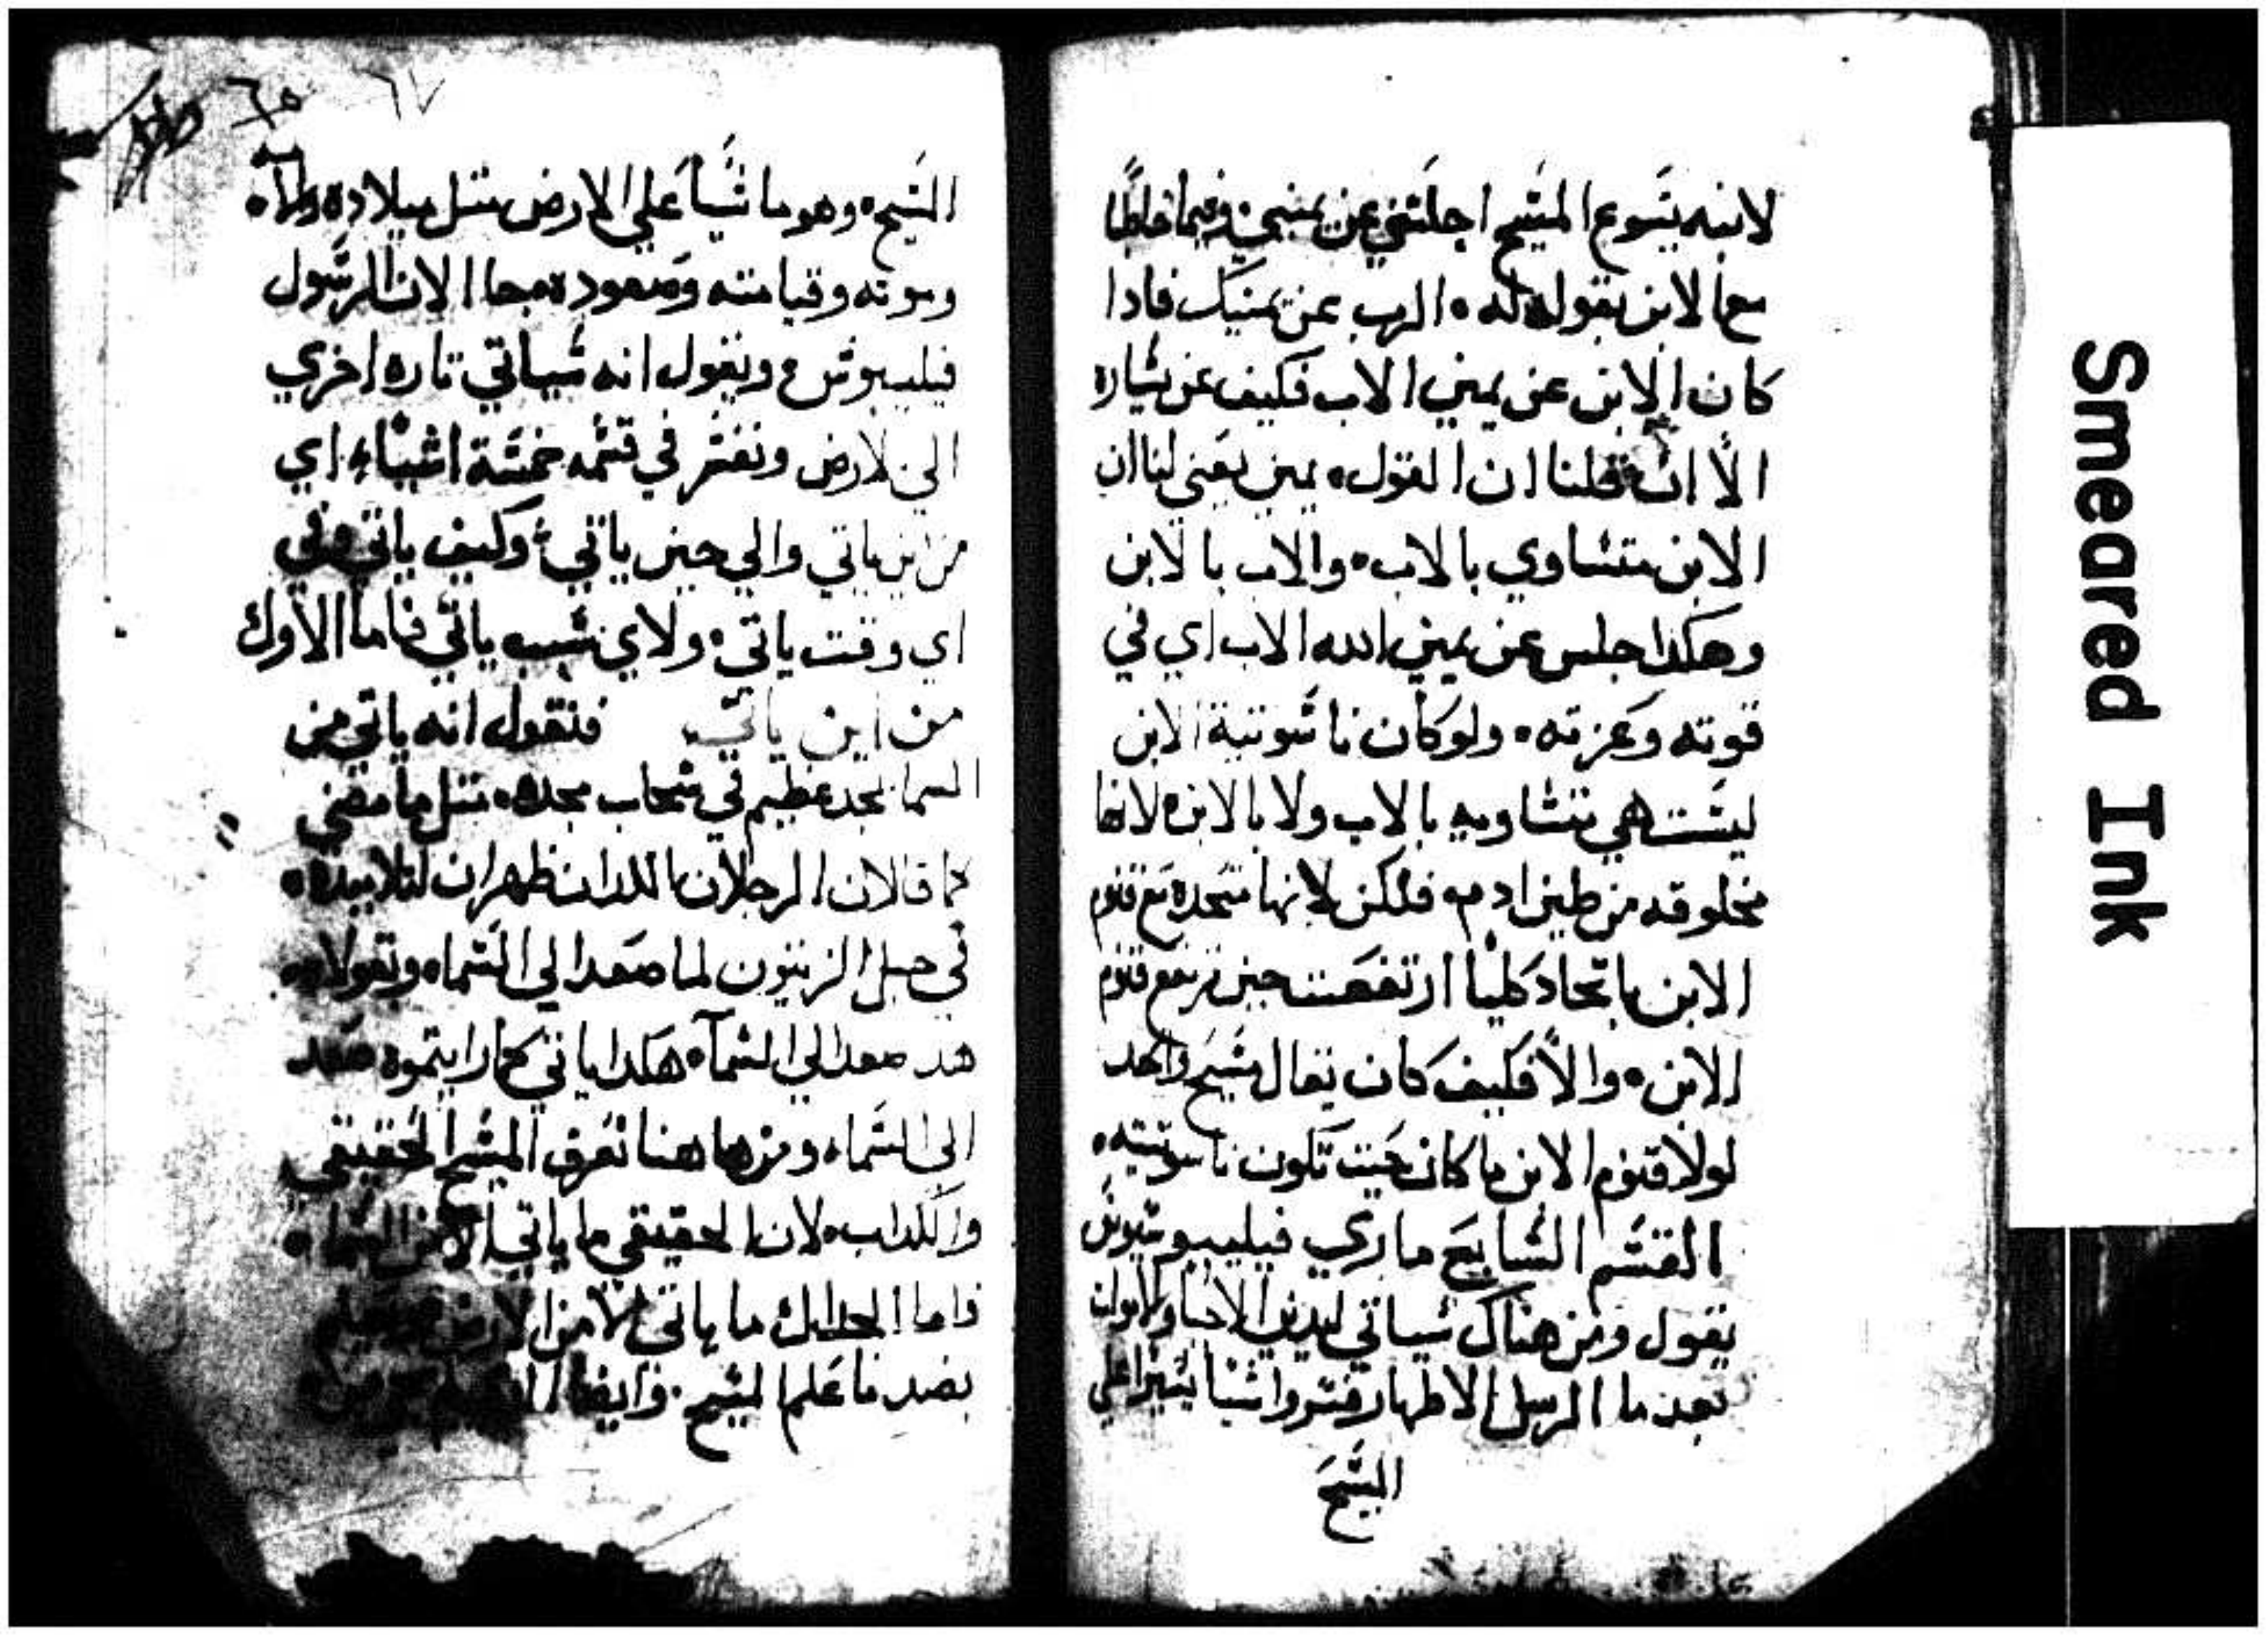 لابنه يسوع المسيح اجلس عن يميني
مع الابن بقوله له ه الرب عن يمينك فادا
كان الابن عن يمين الاب فكيف عن يساره
الا ان قلنا ان القول ه يمين يعني لنا ان
الابن متساوي بالاب ه والاب بالابن
وهكدا جلس عن يمين الله الاب اي في
قوته وعزته ه ولو كان ناسوتية الابن
ليست هي متساويه بالاب ولا بالابن ه لانها
مخلوقه من طين ادم ه فلكن لانها متحده مع قنوم
الابن باتحاد كليا ارتفعت حين ترفع قنوم
الابن ه والا فكيف كان يقال مسيح واحد
لولا قنوم الابن ما كان حيث تكون ناسوتيته ه
القسم السابع ماري فيليبوسيوس
يقول ومن هناك سياتي ليدين الاحيا والاموات
بعد ما الرسل الاطهار فسروا اشيا يسيرا علي
المسيح
٦٥ ٦٧
المسيح ه وهو ماشيا علي الارض متل ميلاده
وموته وقيامته وصعوده ه جا الان الرسول
فيليبوس ويقول انه سياتي تاره اخري
الي الارض ونفسر في قسمه خمسة اشياء اي
من اين ياتي والي حين ياتي وكيف ياتي وفي
اي وقت ياتي ه ولاي سبب ياتي فاما الاول
من اين ياتي فنقول انه ياتي من
السما بمجد عظيم في سحاب مجده ه متل ما مضي
كما قالان الرجلان اللدان ظهران لتلاميده ه
في جبل الزيتون لما صعد الي السماء ويقولا
هد صعد الي السمآ ه هكدا ياتي كما رايتموه صعد
الي السماء ومن هاهنا نعرف المسيح الحقيقي
والكداب ه لان الحقيقي ما ياتي الا من السما ه
فاما ما ياتي الا من الارض
بضد ما علم المسيح ه وايضا
Smeared Ink